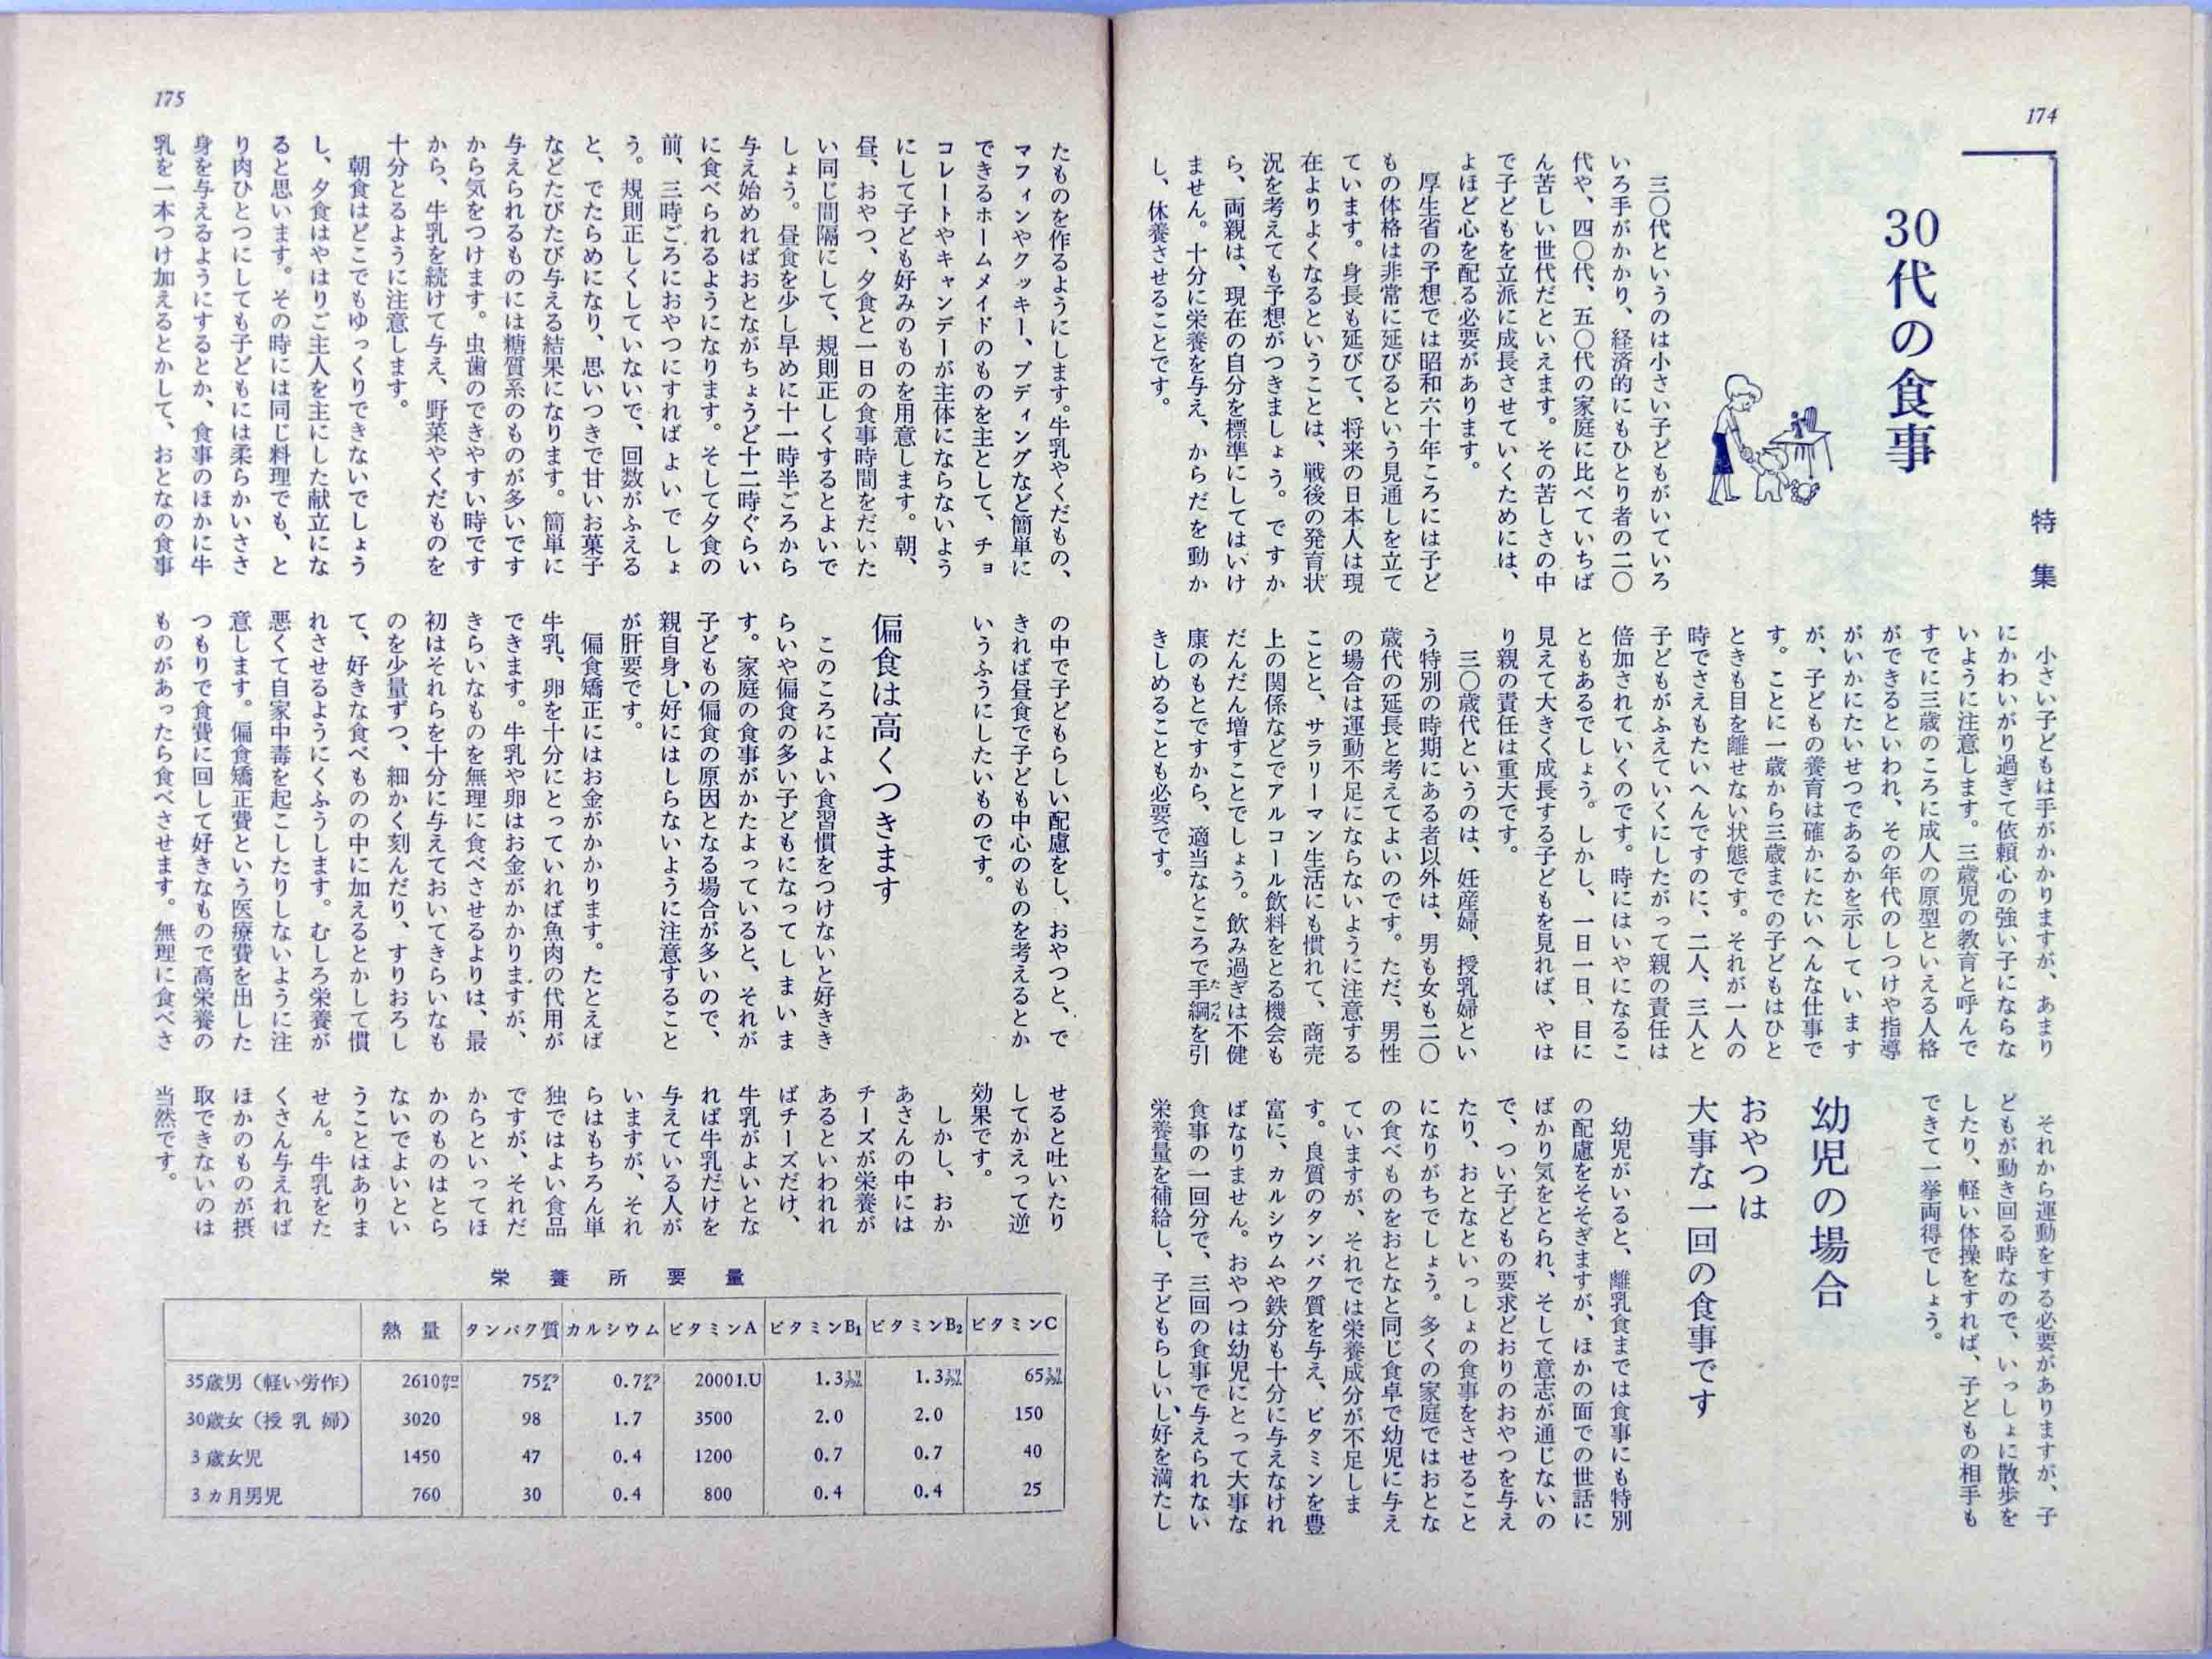 174
特集
30代の食事
三〇代というのは小さい子どもがいていろ
いろ手がかかり、経済的にもひとり者の二〇
代や、四〇代、五〇代の家庭に比べていちば
ん苦しい世代だといえます。その苦しさの中
で子どもを立派に成長させていくためには、
よほど心を配る必要があります。
厚生省の予想では昭和六十年ころには子ど
もの体格は非常に延びるという見通しを立て
ています。身長も延びて、将来の日本人は現
在よりよくなるということは、戦後の発育状
況を考えても予想がつきましょう。ですか
ら、両親は、現在の自分を標準にしてはいけ
ません。十分に栄養を与え、からだを動か
し、休養させることです。
小さい子どもは手がかかりますが、あまり
にかわいがり過ぎて依頼心の強い子にならな
いように注意します。三歳児の教育と呼んで
すでに三歳のころに成人の原型といえる人格
ができるといわれ、その年代のしつけや指導
がいかにたいせつであるかを示しています
が、子どもの養育は確かにたいへんな仕事で
す。ことに一歳から三歳までの子どもはひと
ときも目を離せない状態です。それが一人の
時でさえもたいへんですのに、二人、三人と
子どもがふえていくにしたがって親の責任は
倍加されていくのです。時にはいやになるこ
ともあるでしょう。しかし、一日一日、目に
見えて大きく成長する子どもを見れば、やは
り親の責任は重大です。
三〇歳代というのは、妊産婦、授乳婦とい
う特別の時期にある者以外は、男も女も二〇
歳代の延長と考えてよいのです。ただ、男性
の場合は運動不足にならないように注意する
ことと、サラリーマン生活にも慣れて、商売
上の関係などでアルコール飲料をとる機会も
だんだん増すことでしょう。飲み過ぎは不健
康のもとですから、適当なところで手綱を引
たづな
きしめることも必要です。
それから運動をする必要がありますが、子
どもが動き回る時なので、いっしょに散歩を
したり、軽い体操をすれば、子どもの相手も
できて一挙両得でしょう。
幼児の場合
おやつは
大事な一回の食事です
幼児がいると、離乳食までは食事にも特別
の配慮をそそぎますが、ほかの面での世話に
ばかり気をとられ、そして意志が通じないの
で、つい子どもの要求どおりのおやつを与え
たり、おとなといっしょの食事をさせること
になりがちでしょう。多くの家庭ではおとな
の食べものをおとなと同じ食卓で幼児に与え
ていますが、それでは栄養成分が不足しま
す。良質のタンパク質を与え、ビタミンを豊
富に、カルシウムや鉄分も十分に与えなけれ
ばなりません。おやつは幼児にとって大事な
食事の一回分で、三回の食事で与えられない
栄養量を補給し、子どもらしいし好を満たし
175
たものを作るようにします。牛乳やくだもの、
マフィンやクッキー、プディングなど簡単に
できるホームメイドのものを主として、チョ
コレートやキャンデーが主体にならないよう
にして子ども好みのものを用意します。朝、
昼、おやつ、夕食と一日の食事時間をだいた
い同じ間隔にして、規則正しくするとよいで
しょう。昼食を少し早めに十一時半ごろから
与え始めればおとながちょうど十二時ぐらい
に食べられるようになります。そして夕食の
前、三時ごろにおやつにすればよいでしょ
う。規則正しくしていないで、回数がふえる
と、でたらめになり、思いつきで甘いお菓子
などたびたび与える結果になります。簡単に
与えられるものには糖質系のものが多いです
から気をつけます。虫歯のできやすい時です
から、牛乳を続けて与え、野菜やくだものを
十分とるように注意します。
朝食はどこでもゆっくりできないでしょう
し、夕食はやはりご主人を主にした献立にな
ると思います。その時には同じ料理でも、と
り肉ひとつにしても子どもには柔らかいささ
身を与えるようにするとか、食事のほかに牛
乳を一本つけ加えるとかして、おとなの食事
の中で子どもらしい配慮をし、おやつと、で
きれば昼食で子ども中心のものを考えるとか
いうふうにしたいものです。
偏食は高くつきます
このころによい食習慣をつけないと好きき
らいや偏食の多い子どもになってしまいま
す。家庭の食事がかたよっていると、それが
子どもの偏食の原因となる場合が多いので、
親自身し好にはしらないように注意すること
が肝要です。
偏食矯正にはお金がかかります。たとえば
牛乳、卵を十分にとっていれば魚肉の代用が
できます。牛乳や卵はお金がかかりますが、
きらいなものを無理に食べさせるよりは、最
初はそれらを十分に与えておいてきらいなも
のを少量ずつ、細かく刻んだり、すりおろし
て、好きな食べものの中に加えるとかして慣
れさせるようにくふうします。むしろ栄養が
悪くて自家中毒を起こしたりしないように注
意します。偏食矯正費という医療費を出した
つもりで食費に回して好きなもので高栄養の
ものがあったら食べさせます。無理に食べさ
せると吐いたり
してかえって逆
効果です。
しかし、おか
あさんの中には
チーズが栄養が
あるといわれれ
ばチーズだけ、
牛乳がよいとな
れば牛乳だけを
与えている人が
いますが、それ
らはもちろん単
独ではよい食品
ですが、それだ
からといってほ
かのものはとら
ないでよいとい
うことはありま
せん。牛乳をた
くさん与えれば
ほかのものが摂
取できないのは
当然です。
栄養所要量
熱量 タンパク質 カルシウム ビタミンA ビタミンB1 ビタミンB2 ビタミンC
35歳男（軽い労作） 2610カロリー 75グラム 0.7グラム 2000I.U 1.3ミリグラム 1.3ミリグラム 65ミリグラム
30歳女（授乳婦） 3020 98 1.7 3500 2.0 2.0 150
3歳女児 1450 47 0.4 1200 0.7 0.7 40
3カ月男児 760 30 0.4 800 0.4 0.4 25